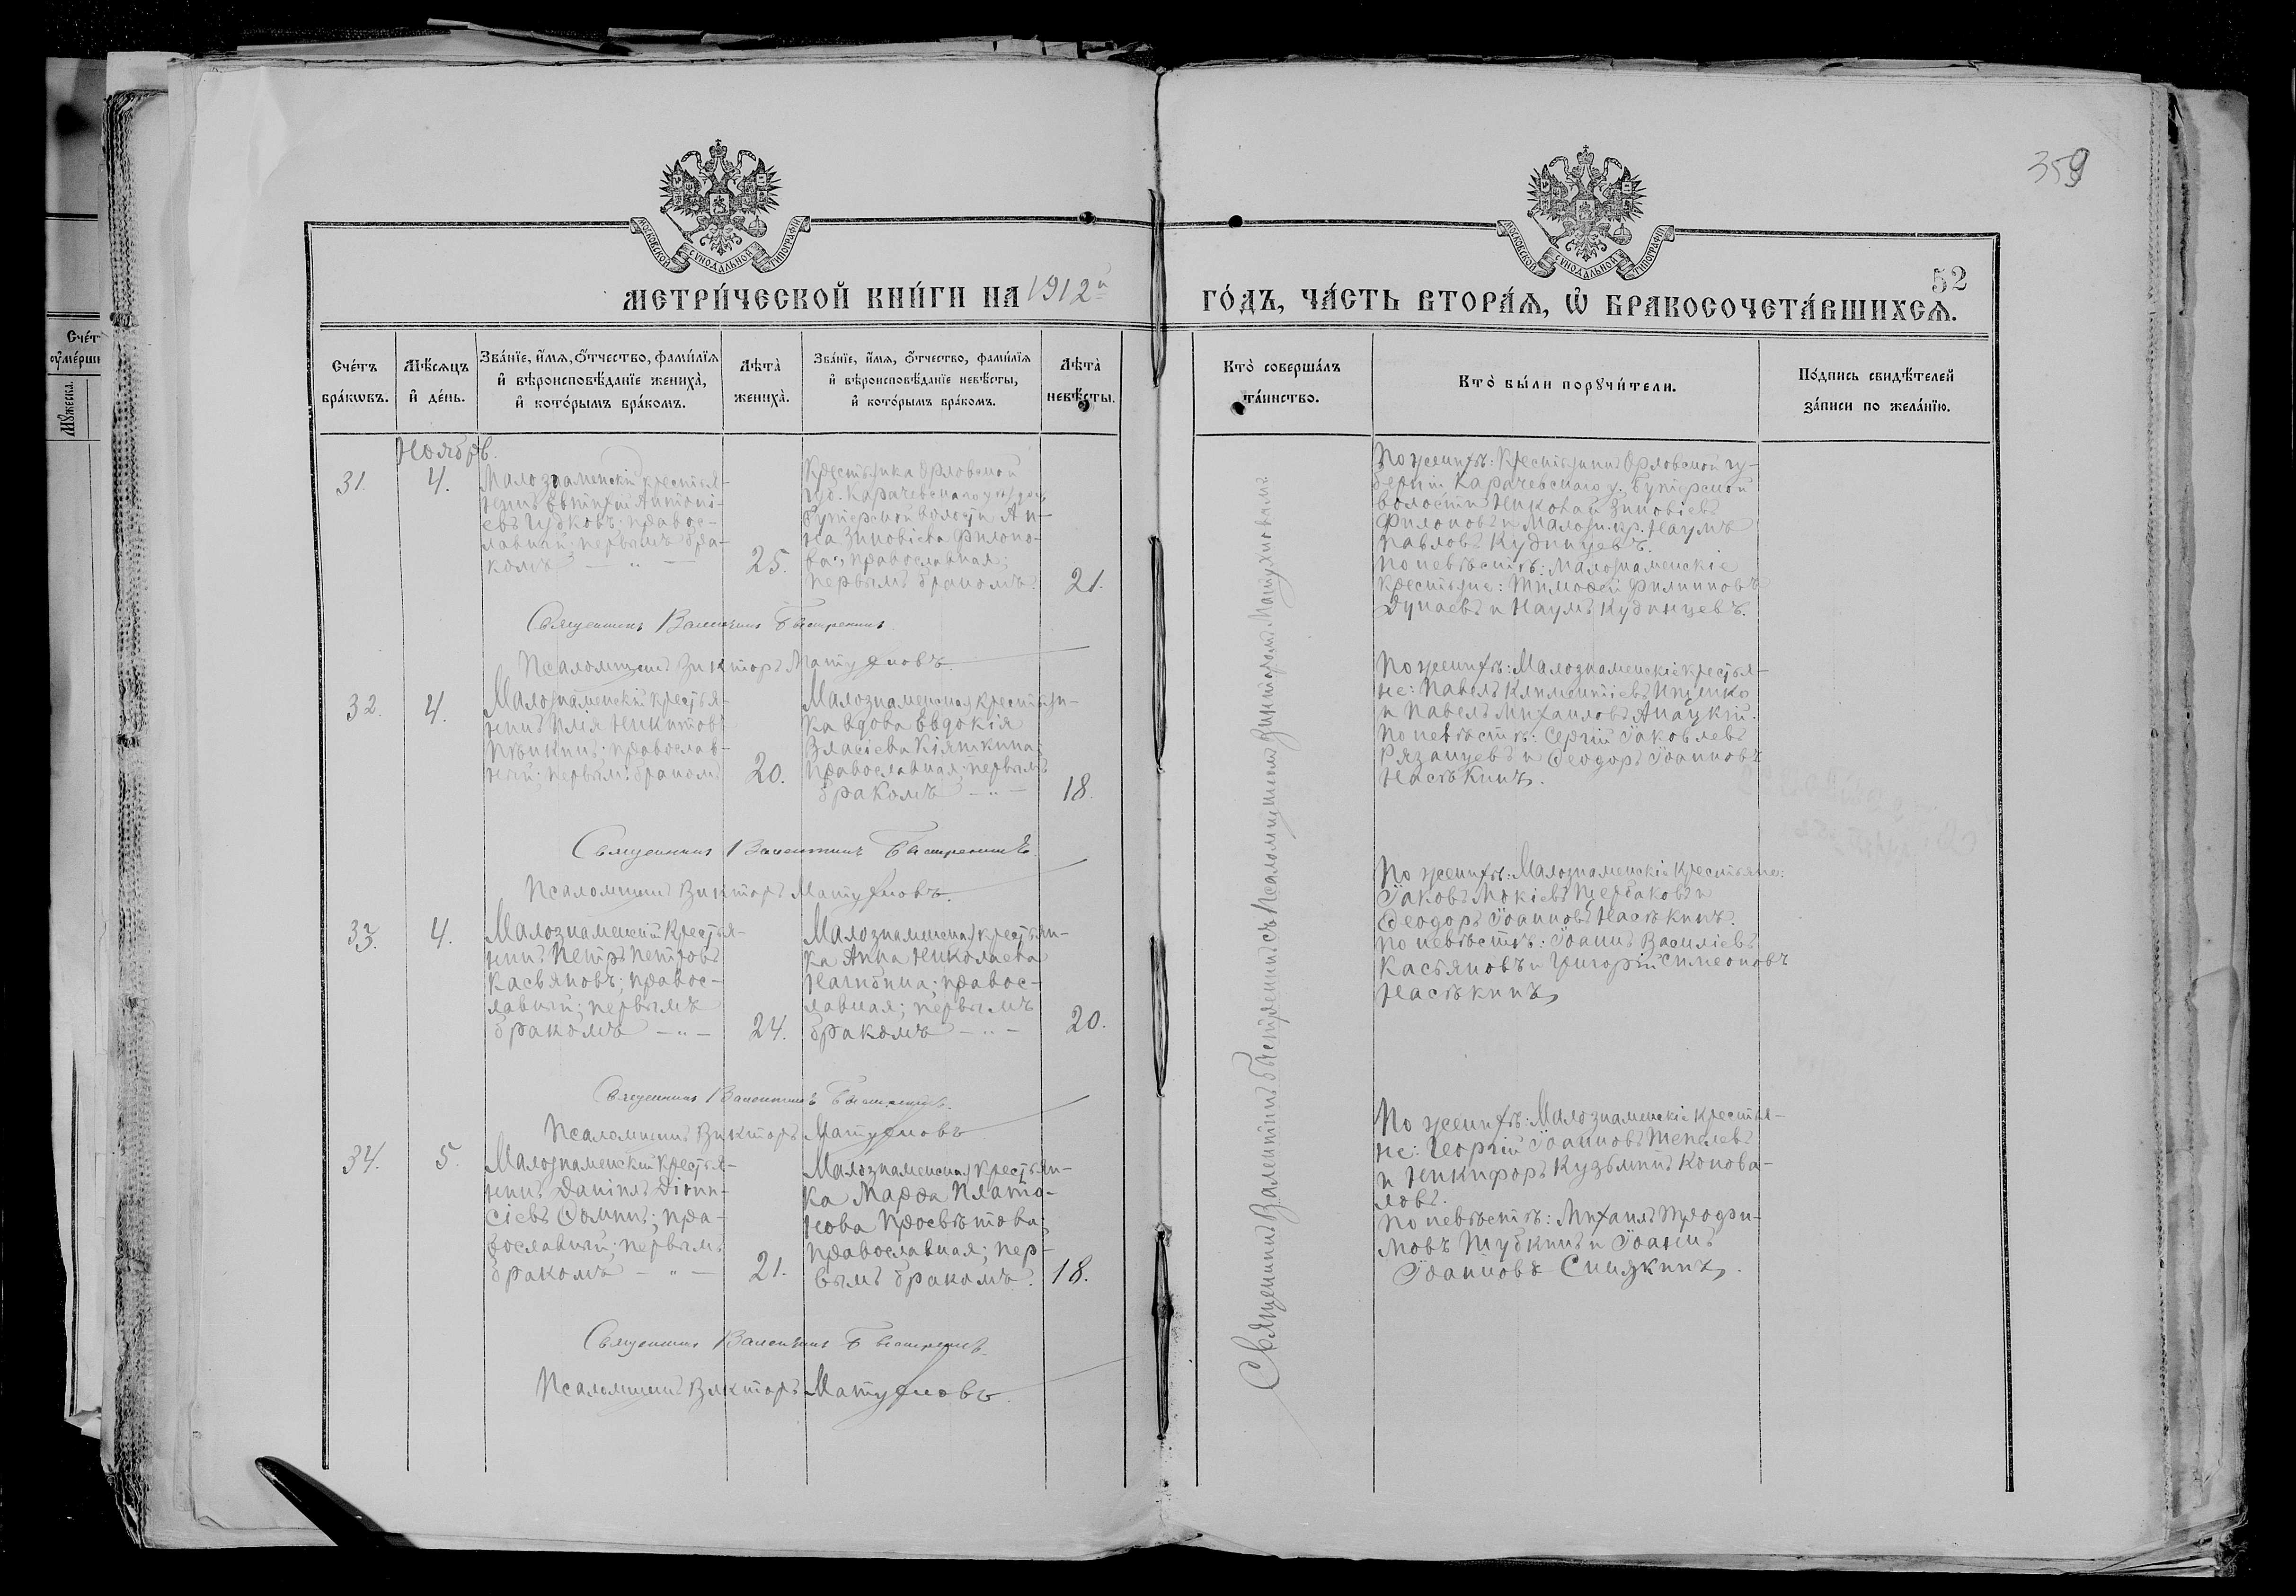 359
52
МОСКОВСКОЙ СѴНОДАЛЬНОЙ ТИПОГРАФІИ
МОСКОВСКОЙ СѴНОДАЛЬНОЙ ТИПОГРАФІИ
МЕТРИ́ЧЕСКОЙ КНИ́ГИ НА 1912й ГО́ДЪ, ЧА́СТЬ ВТОРА́Я, Ѡ҆ БРАКОСОЧЕТА́ВШИХСѦ.
Сче́тъ
бра́кѡвъ.
Мѣ́сѧцъ
и҆ де́нь.
Зва́нїе, и҆́мѧ, ѻ҆́тчество, фами́лїѧ
и҆ вѣроисповѣ́данїе жениха̀,
и҆ кото́рымъ бра́комъ.
Лѣта̀
жениха̀.
Зва́нїе, и҆́мѧ, ѻ҆́тчество, фами́лїѧ
и҆ вѣроисповѣ́данїе невѣ́сты,
и҆ кото́рымъ бра́комъ.
Лѣта̀
невѣ́сты.
Кто̀ соверша́лъ
та́инство.
Кто̀ бы́ли порꙋчи́тели.
По́дпись свидѣ́телей
за́писи по жела́нїю.
Сче́т
ᲂу҆ме́рши
Мꙋ́жеска.
Ноябрь.
31.
4.
Малознаменскій крестья-
нинъ Евтихій Антоні-
евъ Губковъ; правос-
лавный; первымъ бра-
комъ — " —
25.
Крестьянка Орловской
губ. Карачевскаго уѣзда
Бутерской волости Ан-
на Зиновіева Филоно-
ва; православная;
первымъ бракомъ.
21.
По женихѣ: Крестьянинъ Орловской гу-
берніи Карачевскаго у. Бутерской
волости Николай Зиновіевъ
Филоновъ и Малозн. кр. Наумъ
Павловъ Кудинцевъ.
По невѣстѣ: Малознаменскіе
крестьяне: Тимоѳей Филипповъ
Дунаевъ и Наумъ Кудинцевъ.
Священникъ Валентинъ Быстренинъ
Псаломщикъ Викторъ Матухновъ
32.
4.
Малознаменскій крестья-
нинъ Илія Никитовъ
Пѣнкинъ; православ-
ный; первымъ бракомъ
20.
Малознаменская крестьян-
ка вдова Евдокія
Власіева Кіяткина;
православная; первымъ
бракомъ — " —
18.
По женихѣ: Малознаменскіе крестья-
не: Павелъ Климентіевъ Ищенко
и Павелъ Михаиловъ Анацкій.
По невѣстѣ: Сергій Іаковлевъ
Рязанцевъ и Ѳеодоръ Іоанновъ
Насѣкинъ.
Священникъ Валентинъ Быстренинъ
Псаломщикъ Викторъ Матухновъ.
33.
4.
Малознаменскій крестья-
нинъ Петръ Петровъ
Касьяновъ; правос-
лавный; первымъ
бракомъ — " —
24.
Малознаменская крестьян-
ка Анна Николаева
Нагибина; правос-
лавная; первымъ
бракомъ — " —
20.
По женихѣ: Малознаменскіе крестьяне:
Іаковъ Мокіевъ Щербаковъ и
Ѳеодоръ Іоанновъ Насѣкинъ.
По невѣстѣ: Іоаннъ Василіевъ
Касьяновъ и Григорій Симеоновъ
Насѣкинъ,
Священникъ Валентинъ Быстренинъ.
Псаломщикъ Викторъ Матухновъ
34.
5.
Малознаменскій крестья-
нинъ Даніилъ Діони-
сіевъ Ѳоминъ; пра-
вославный; первымъ
бракомъ — " —
21.
Малознаменская крестьян-
ка Марѳа Плато-
нова Просвѣтова;
православная; пер-
вымъ бракомъ.
18.
По женихѣ: Малознаменскіе крестья-
не: Георгій Іоанновъ Тепляевъ
и Никифоръ Кузьминъ Конова-
ловъ.
По невѣстѣ: Михаилъ Трофи-
мовъ Шубкинъ и Іоаннъ
Іоанновъ Синяткинъ.
Священникъ Валентинъ Быстренинъ.
Псаломщикъ Викторъ Матухновъ.
Священникъ Валентинъ Быстренинъ съ Псаломщикомъ Викторомъ Матухновымъ